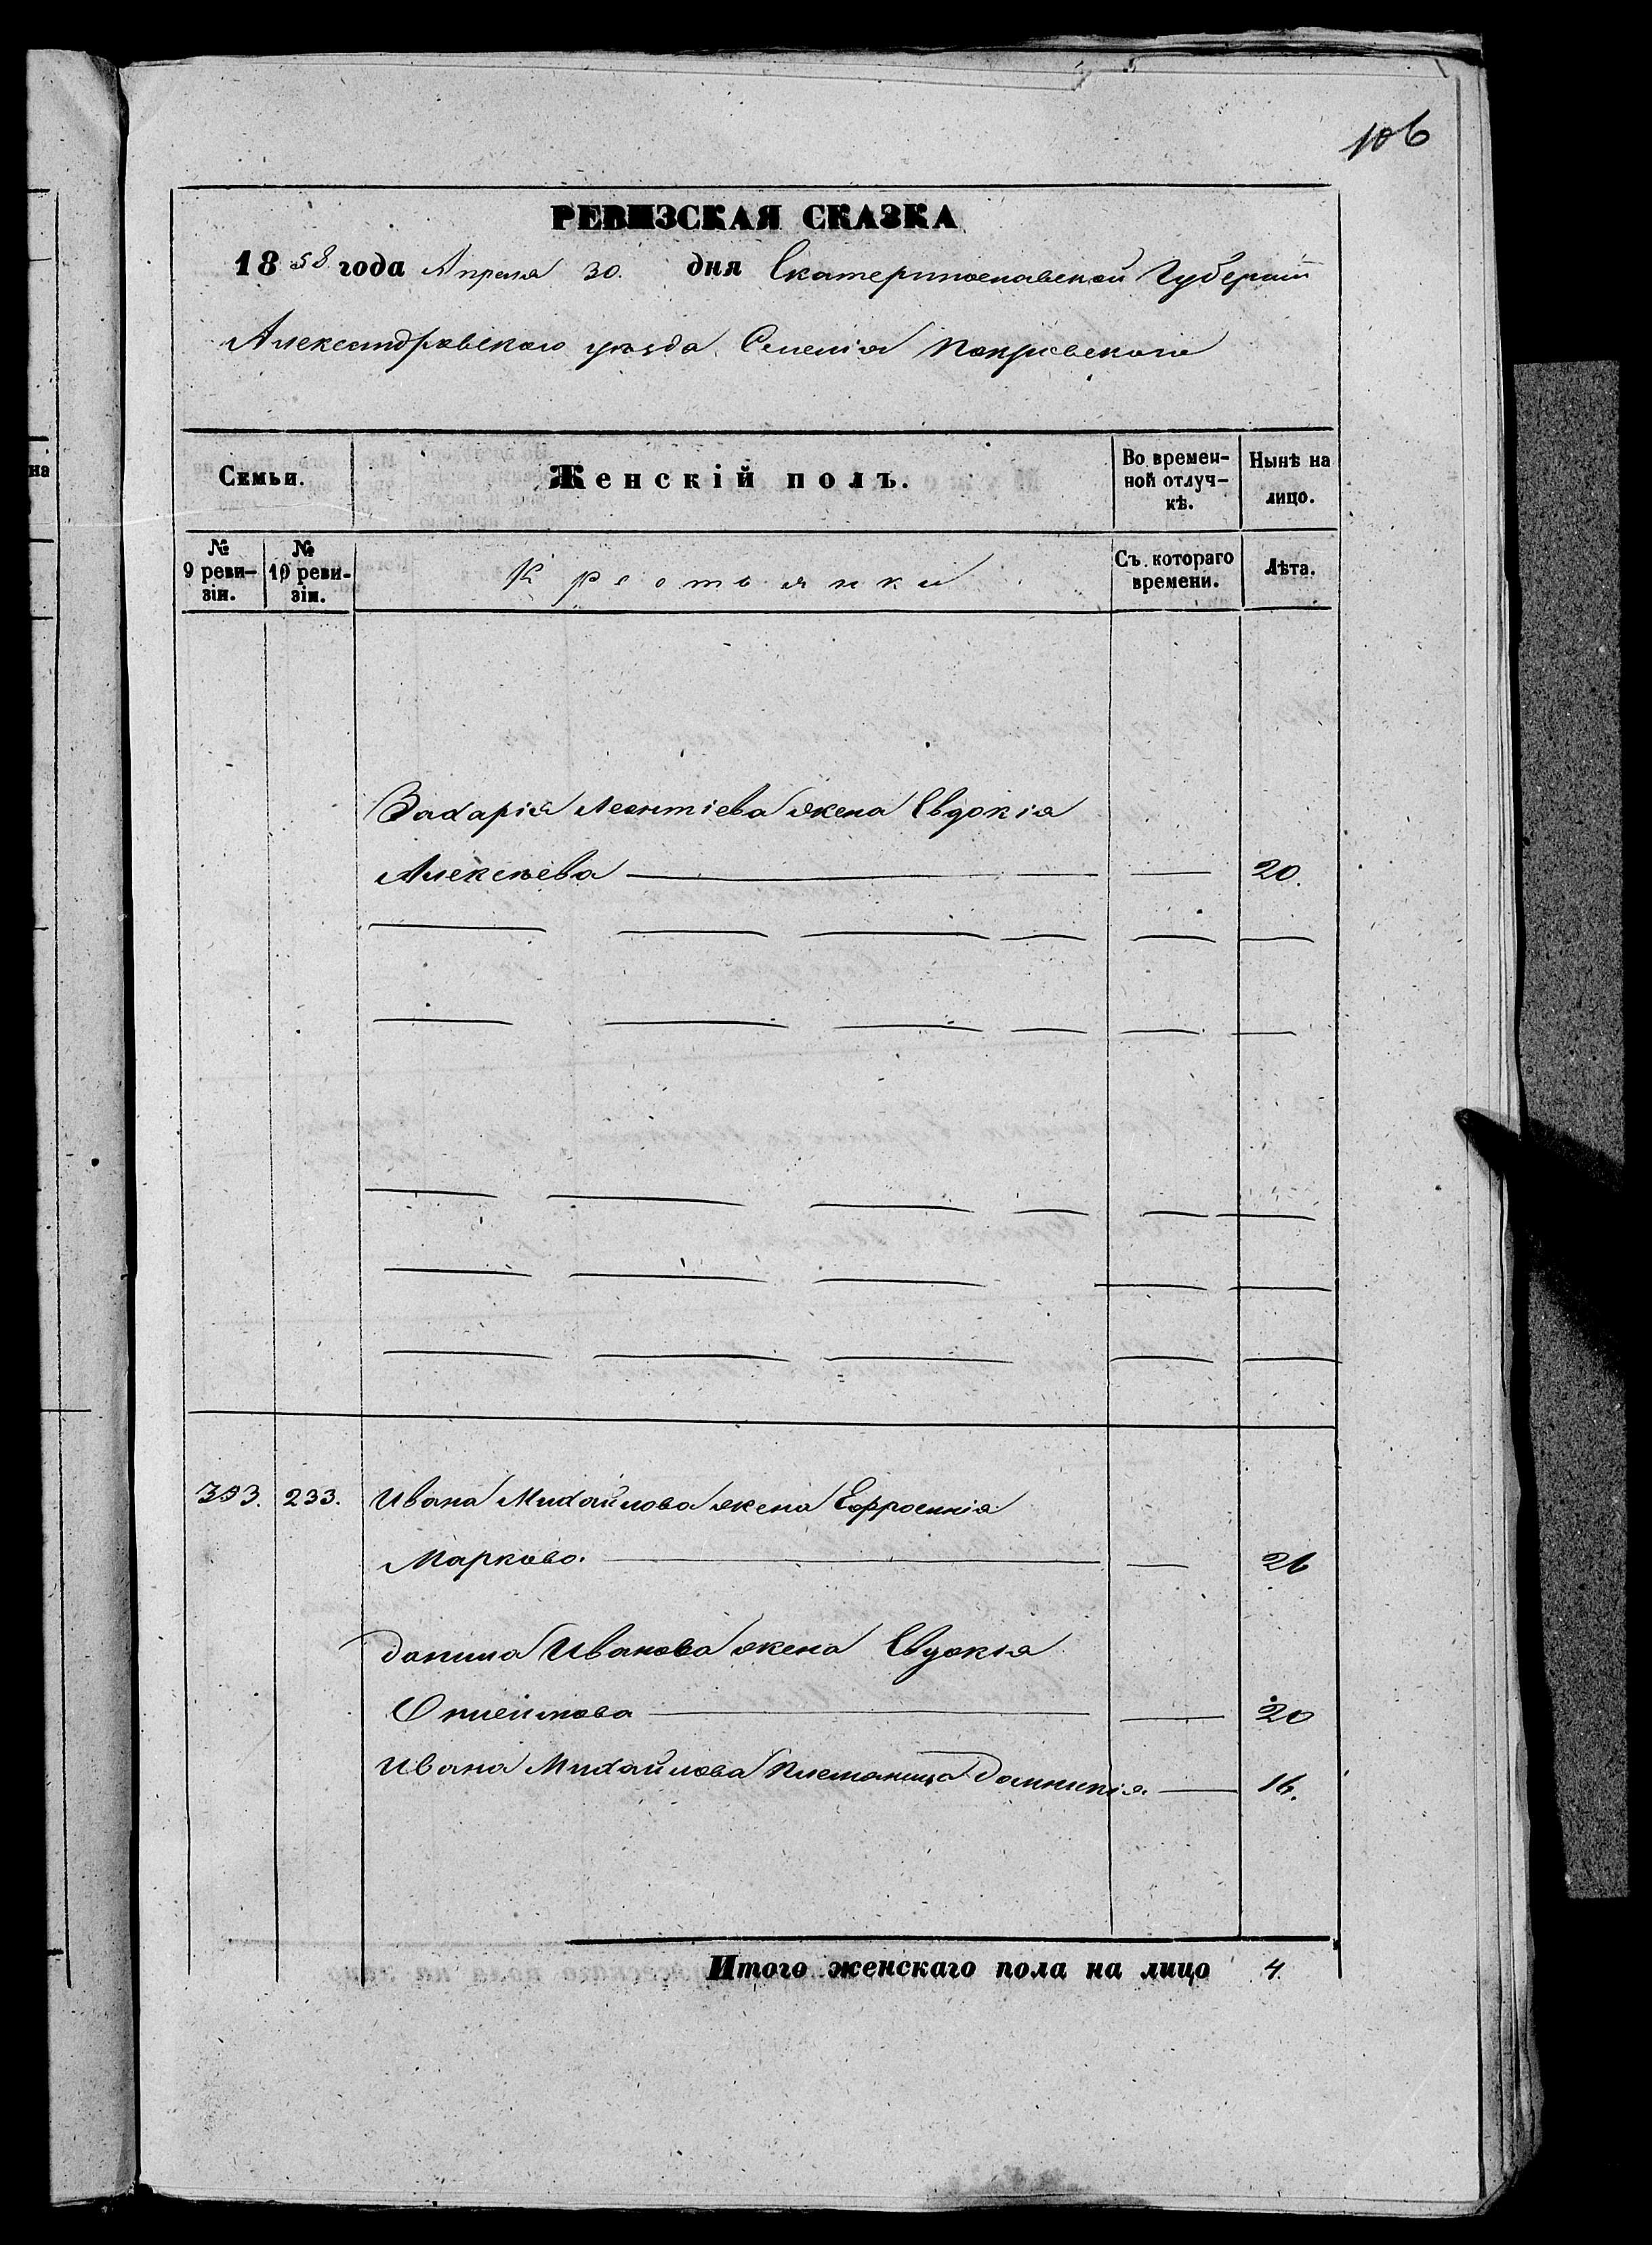 106
РЕВИЗСКАЯ СКАЗКА
1858 года Апреля 30. дня Екатеринославской Губернии
Александровскаго уѣзда Селенія Покровскаго
Семьи. Женскій полъ. Во времен-ной отлуч-кѣ. Нынѣ на лицо.
№ 9 реви-зіи. № 10 реви-зіи. Крестьянки Съ котораго времени. Лѣта.
на
Захарія Леонтіева жена Евдокія
Алексѣева 20.
393. 233. Ивана Михайлова жена Ефросинія
Маркова. 26
Данила Иванова жена Евдокія
20
Ивана Михайлова племяница Домникія 16.
Итого женскаго пола на лицо 4.